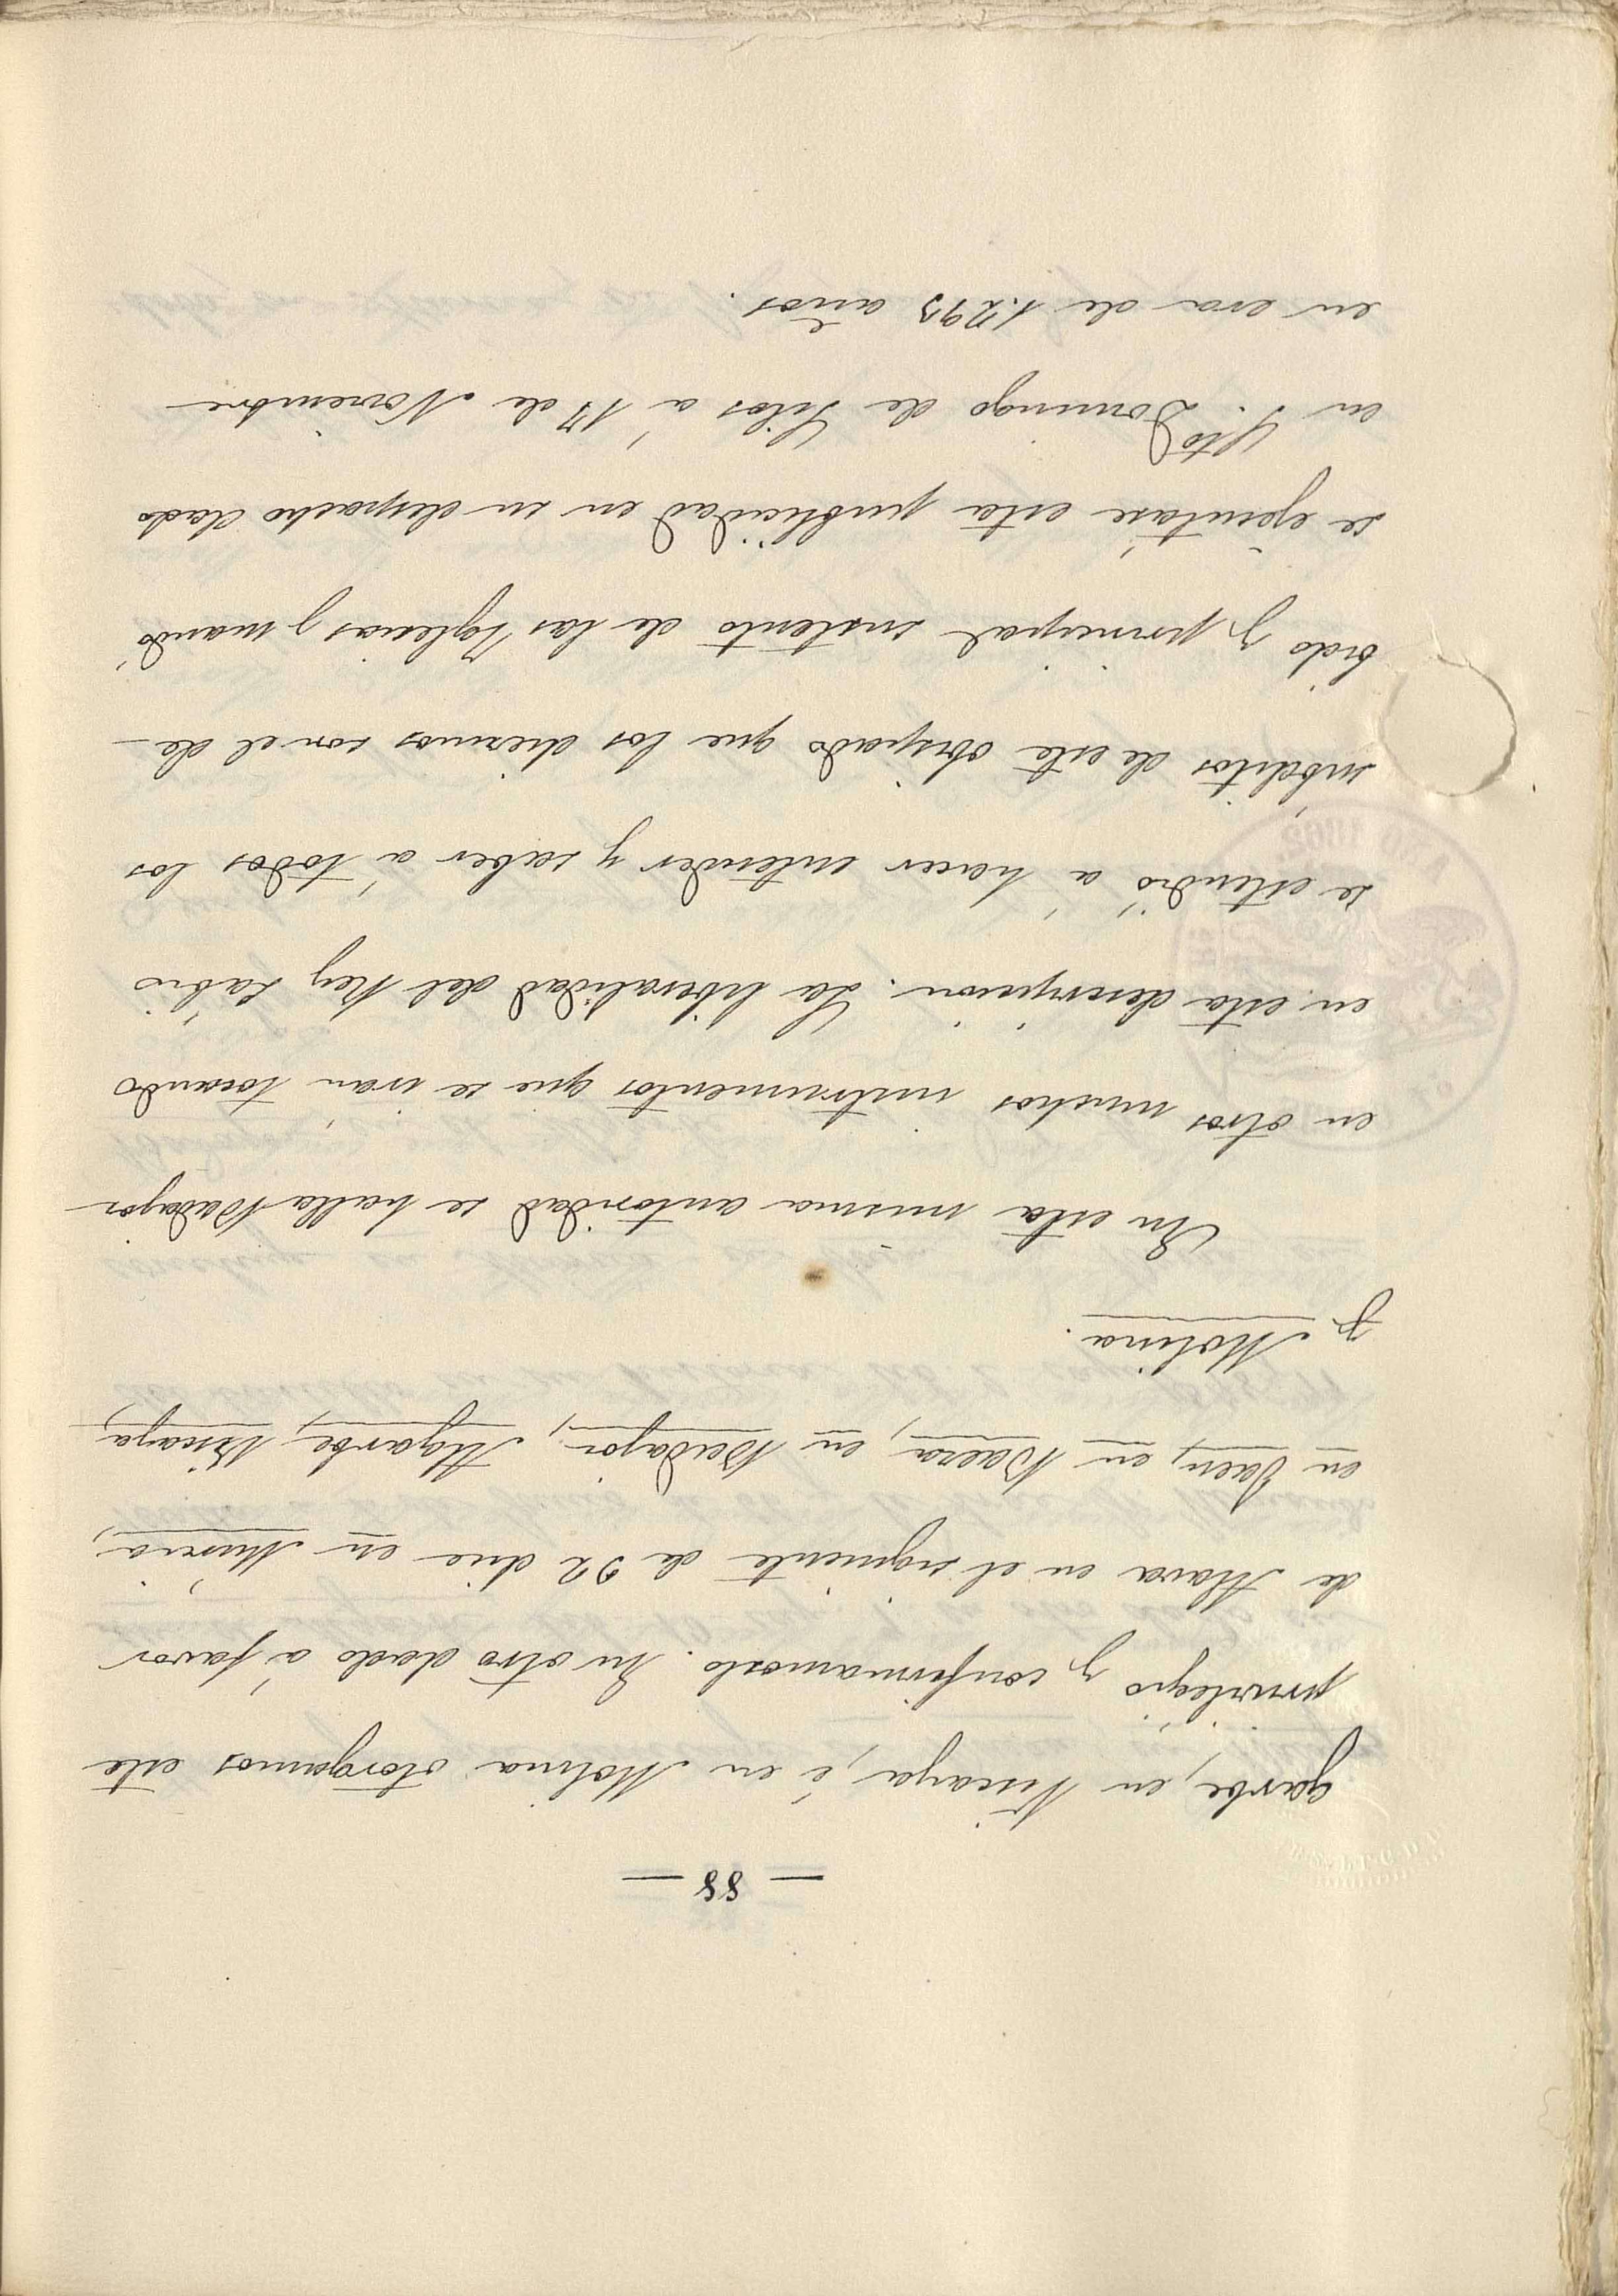 — 88 —
garbe, en Viscaya, é en Molina otorgamos este
privilegio y confirmamoslo. En otro dado á favor
de Alava en el siguiente de 92 dice en Murcia,
en Jaen, en Baeza, en Badajoz, Algarbe, Viscaya,
y Molina.
En esta misma autoridad se halla Badajoz
en otros muchos instrumentos que se irán tocando
en esta descripcion. La liberalidad del Rey Sabio
se estendió á hacer entender y saber á todos los
súbditos de este obispado que los diezmos son el de-
bido y principal sustento de las Yglesias y mandó
se ejecutase esta publicidad en su despacho dado
en Sto. Domingo de Silos á 17 de Noviembre
en era de 1293 años.